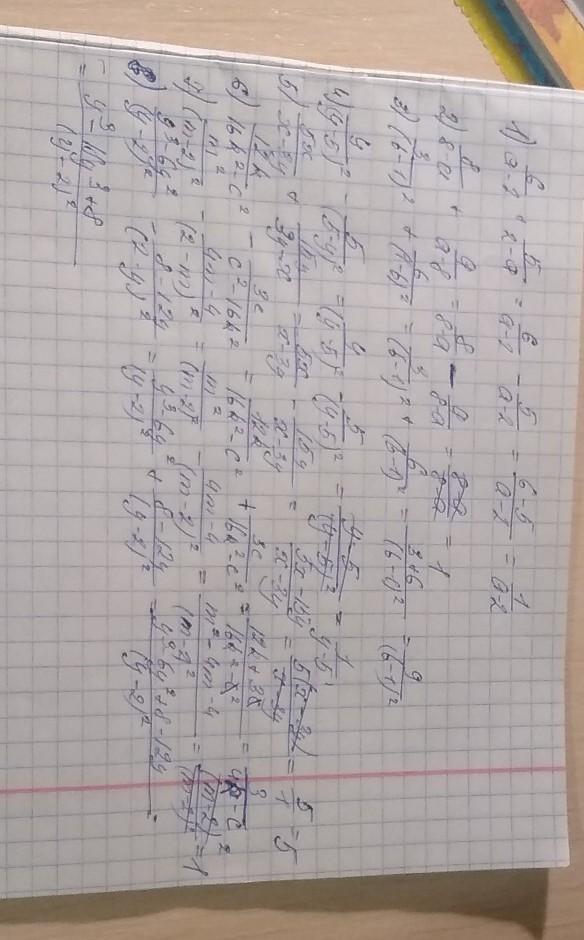 1) 6/(a-2) + 5/(2-a) = 6/(a-2) - 5/(a-2) = (6-5)/(a-2) = 1/(a-2)
2) 8/(8-a) + a/(a-8) = 8/(8-a) - a/(8-a) = (8-a)/(8-a) = 1
3) 3/(b-1)² + 6/(1-b)² = 3/(b-1)² + 6/(b-1)² = (3+6)/(b-1)² = 9/(b-1)²
4) y/(y-5)² - 5/(5-y)² = y/(y-5)² - 5/(y-5)² = (y-5)/(y-5)² = 1/(y-5)
5) 5x/(x-3y) + 15y/(3y-x) = 5x/(x-3y) - 15y/(x-3y) = (5x-15y)/(x-3y) = 5(x-3y)/(x-3y) = 5/1 = 5
6) 12k/(16k²-c²) - 3c/(c²-16k²) = 12k/(16k²-c²) + 3c/(16k²-c²) = (12k+3c)/(16k²-c²) = 3/(4k-c)
7) m²/(m-2)² - (4m-4)/(2-m)² = m²/(m-2)² - (4m-4)/(m-2)² = (m²-4m-4)/(m-2)² = (m-2)²/(m-2)² = 1
8) (y³-6y²)/(y-2)² - (8-12y)/(2-y)² = (y³-6y²)/(y-2)² + (8-12y)/(y-2)² = (y³-6y²+8-12y)/(y-2)² =